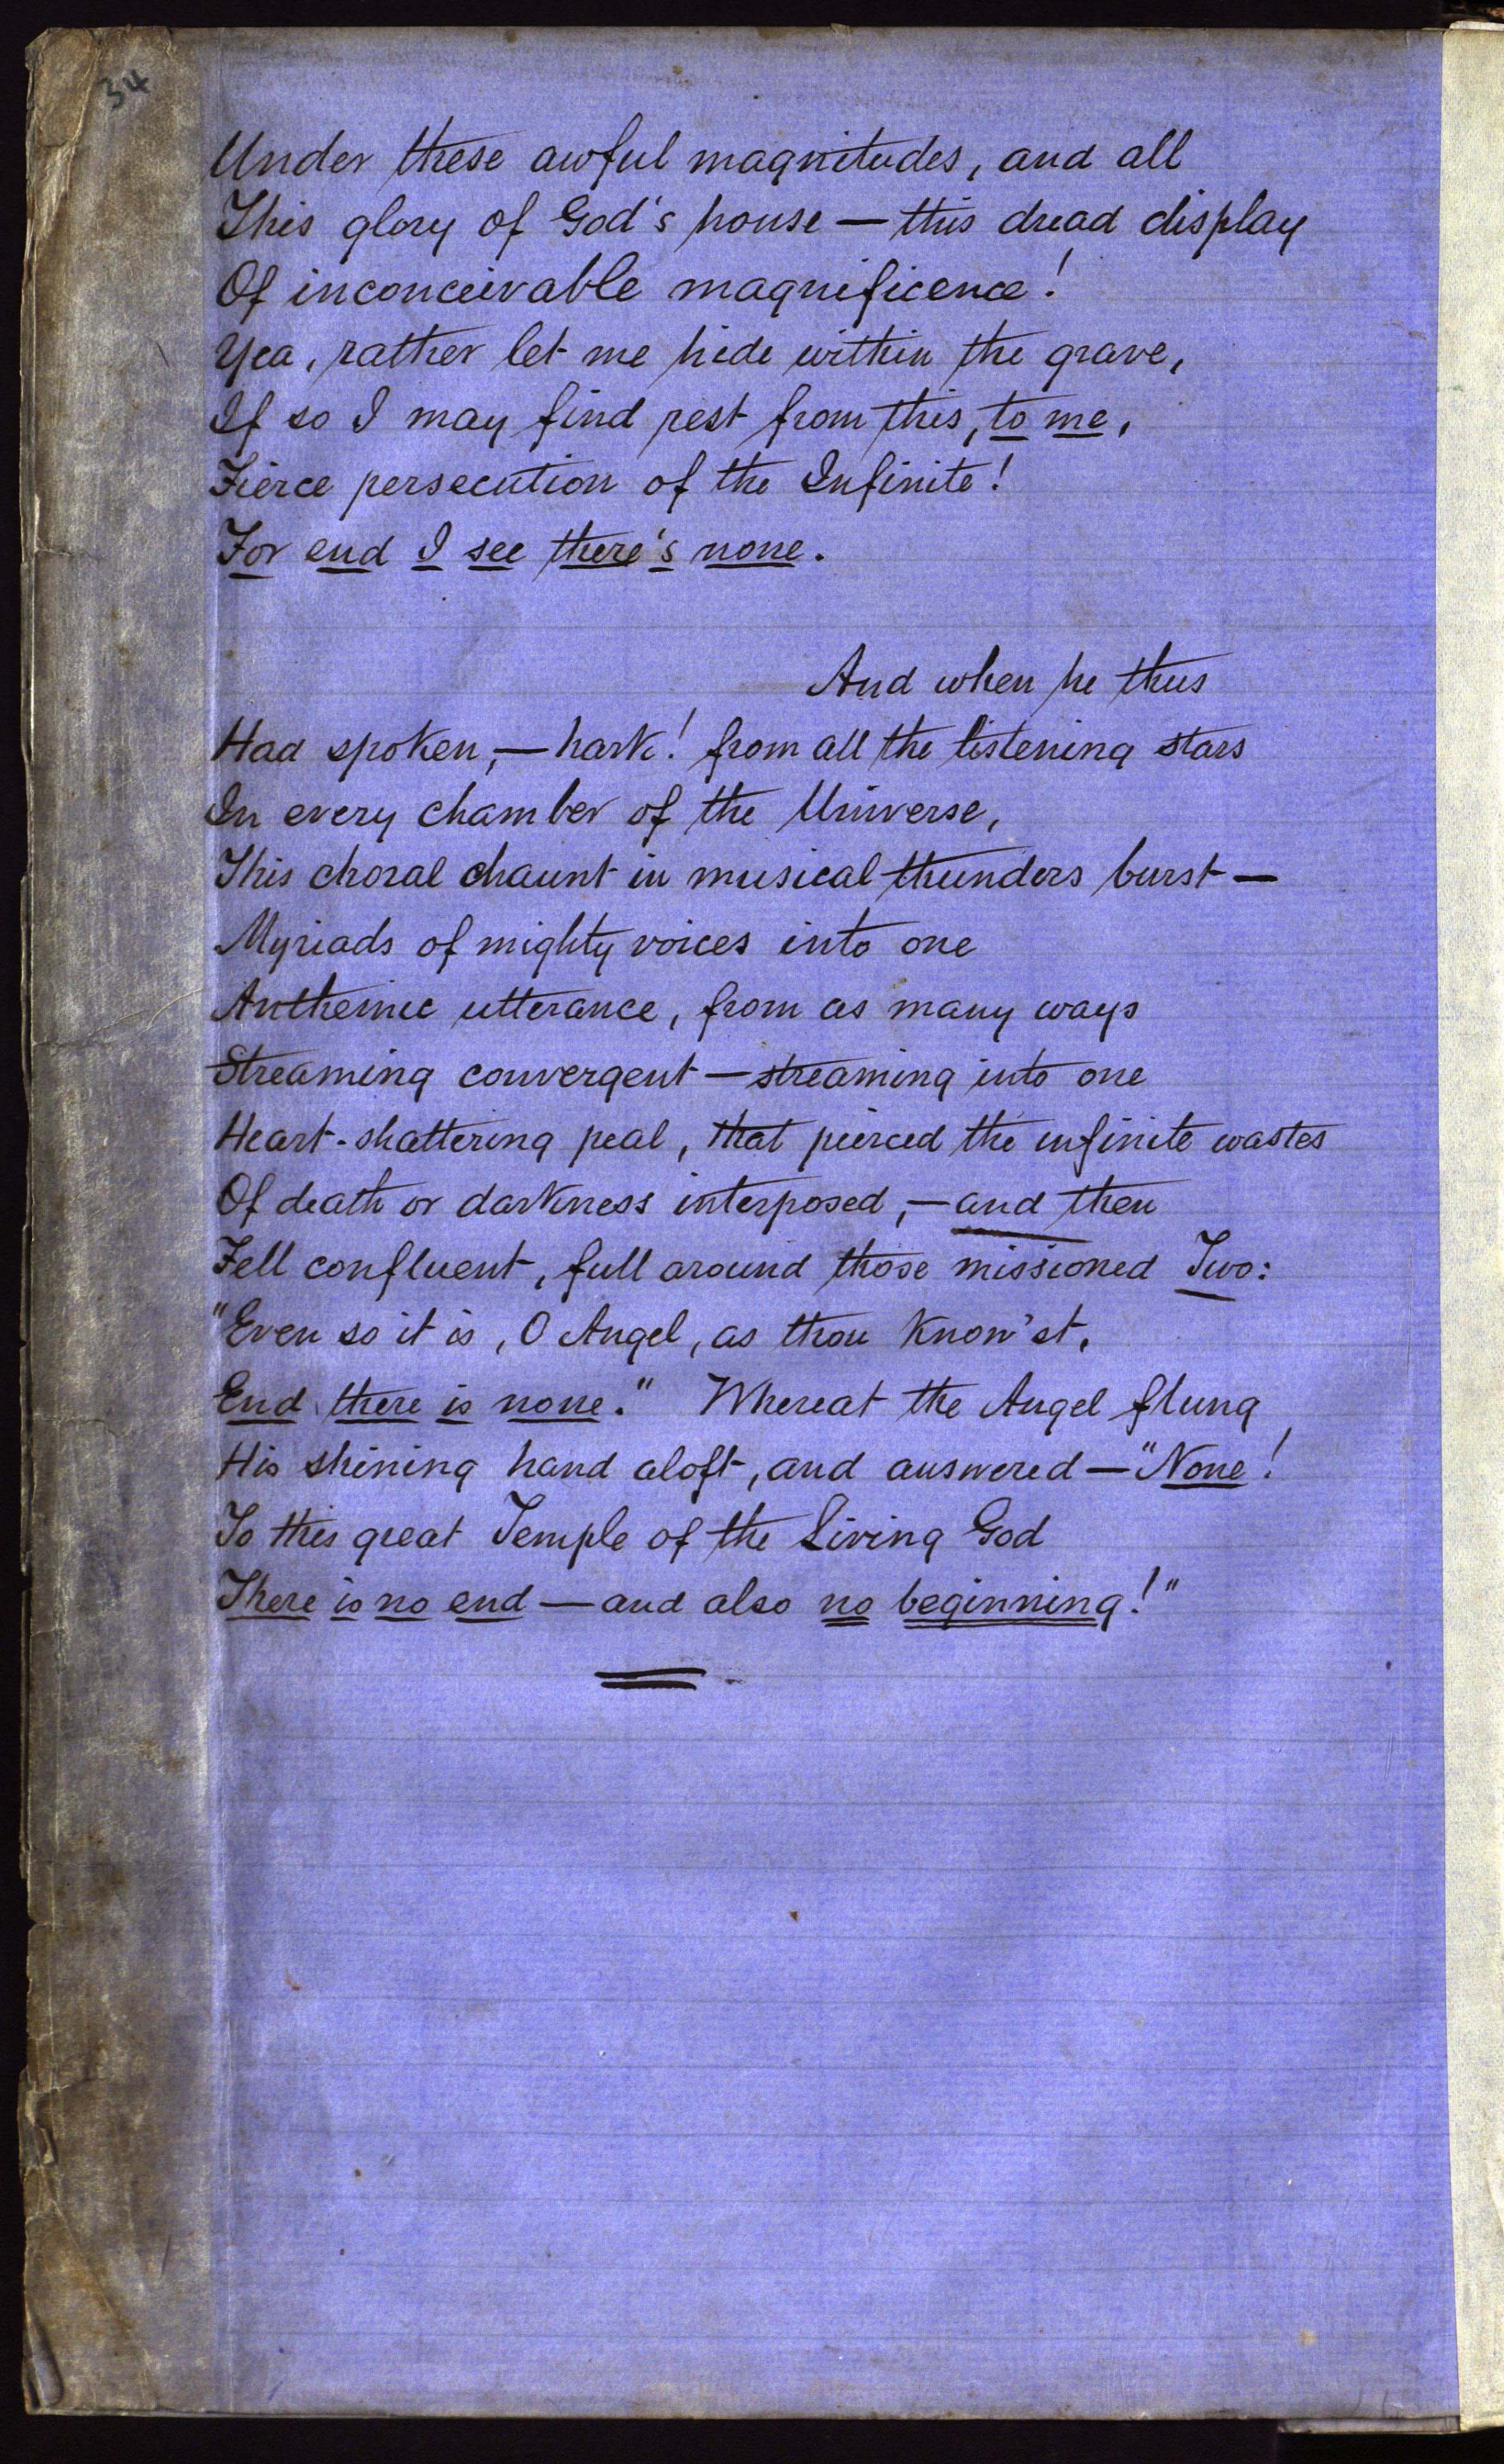 34
Under these awful magnitudes, and all
This glory of God's house — this dread display
Of inconceivable magnificence!
Yea, rather let me hide within the grave,
If so I may find rest from this, to me,
Fierce persecution of the Infinite!
For end I see there's none.
And when he thus
Had spoken, — hark! from all the listening stars
In every chamber of the Universe,
This choral chaunt in musical thunders burst —
Myriads of mighty voices into one
Anthemic utterance, from as many ways
Streaming convergent — streaming into one
Heart-shattering peal, that pierced the infinite wastes
Of death or darkness interposed, — and then
Fell confluent, full around those missioned Two:
"Even so it is, O Angel, as thou know'st,
End there is none." Whereat the Angel flung
His shining hand aloft, and answered — "None!
To this great Temple of the Living God
There is no end — and also no beginning!"